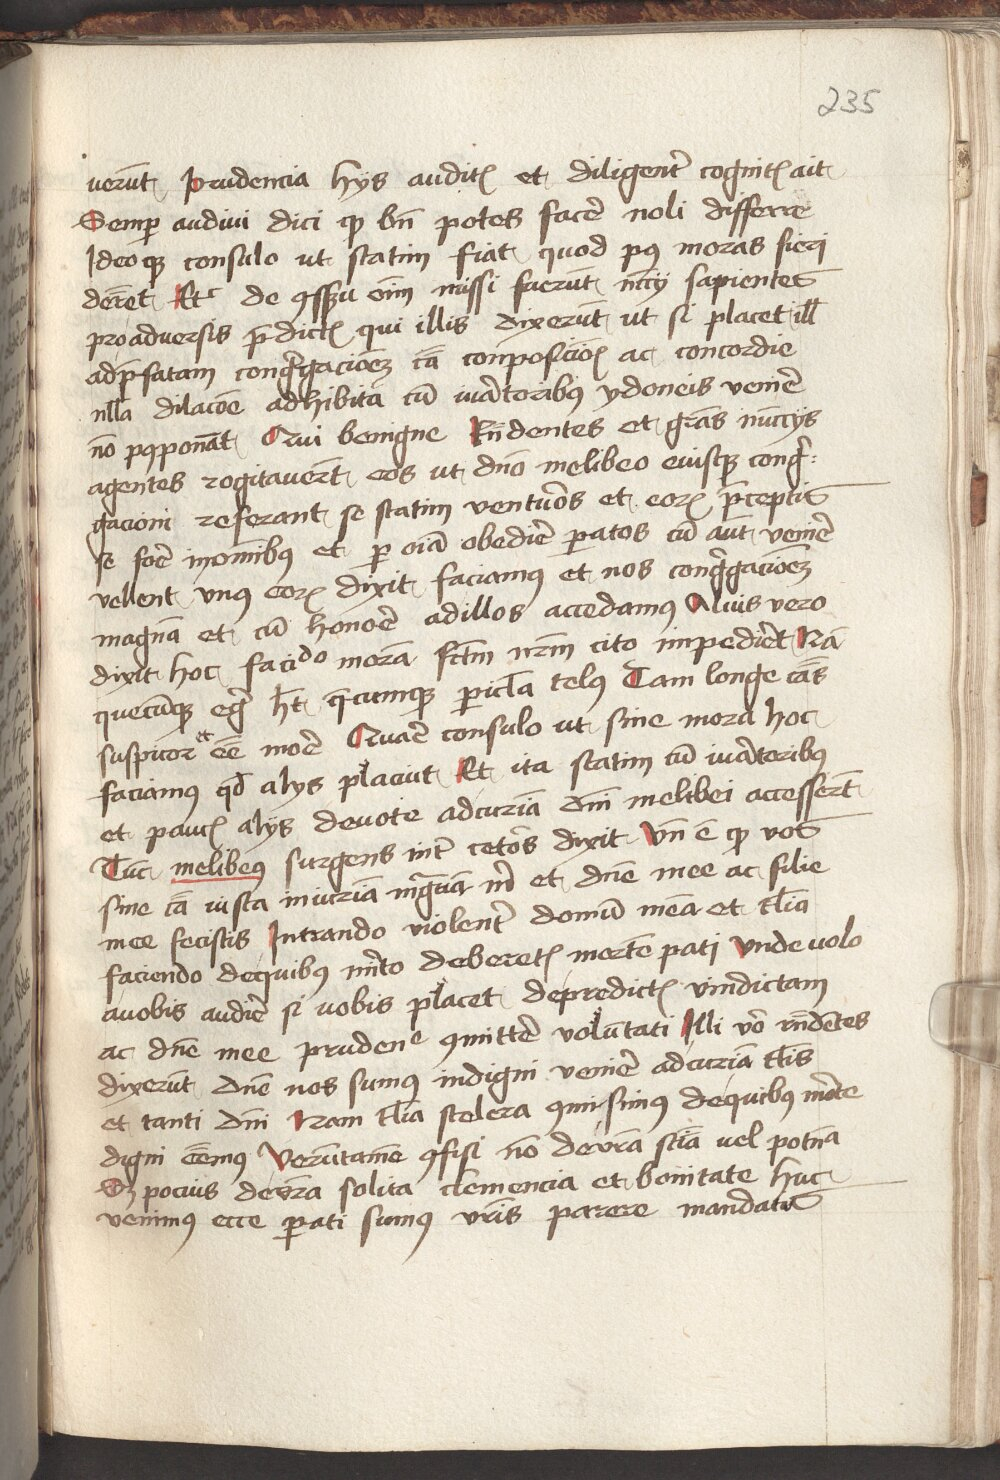 235
uerūt Prudencia hÿs auditꝭ et diligent̉ cognitꝭ ait
Semꝑ audiui dici ꝙ bn̄ potes facē noli differre
Ideo qꝫ consulo ut statim fiat quod pꝰ moras fieri
derēt Et de ꝯsēsu oīm missi fuerūt nūcÿ sapientes
proaduersis p̄dictꝭ qui illis dixerūt ut si placet ill
adp̄fatam congregacioēꝫ cā conposicioīs ac concordie
nlla dilacōe adhibita cū iuratoribꝰ ydoneis venirē
nō pꝰponāt Qui benigne Rn̄dentes et grās nūcÿs
agentes rogitauerūt eos ut dn̄o melibeo eiusqꝫ congr̄:
gacioni referant se statim venturos et eorꝫ p̄ceptis
se forē inomnibꝰ et ꝑ oīa obedirē ꝑatos cū aūt venirē
vellent vnꝰ eorꝫ dixit faciamꝰ et nos congregacioēꝫ
magnā et cū honorē adillos accedamꝰ Aliuis vero
dixit hoc faciēdo morā fctm̄ nr̄m cito impedirēt Nā
quecūqꝫ egr̄ hꝫ q̄cumqꝫ ꝑicl̄a telꝰ Tam longe cās
suspicor et eē morē Quarē consulo ut sine mora hoc
faciamꝰ qd̄ alÿs placiut Et ita statim cū iuratoribꝰ
et paucꝭ alÿs deuote adcuriā dn̄i melibei accesserūt
Tūc melibeꝰ surgens int̉ cetos dixit Vn̄ ē ꝙ vos
sine cā iusta iniuriā mgnā m̄ et dn̄e mee ac filie
mee fecistis Intrando violent̉ domū meā et tl̄ia
faciendo dequibꝰ mr̄to deberetꝭ mortē pati Vnde uolo
auobis audirē si uobis placet depredictꝭ vindictam
ac dn̄e mee prudenᵉ ꝯmittē volūtati Illi vō rn̄dētes
dixerūt dn̄e nos sumꝰ indigni venirē adcuriā tl̄is
et tanti dn̄i Nam tl̄ia scelera ꝯmisimꝰ dequibꝰ morte
digni eēmꝰ Verūtamē ꝯfisi nō devrā sciā uel potn̄a
Sꝫ pocius devrā solita clemencia et bonitate huc
venimꝰ ecce ꝑati sumꝰ vrīs parere mandatis